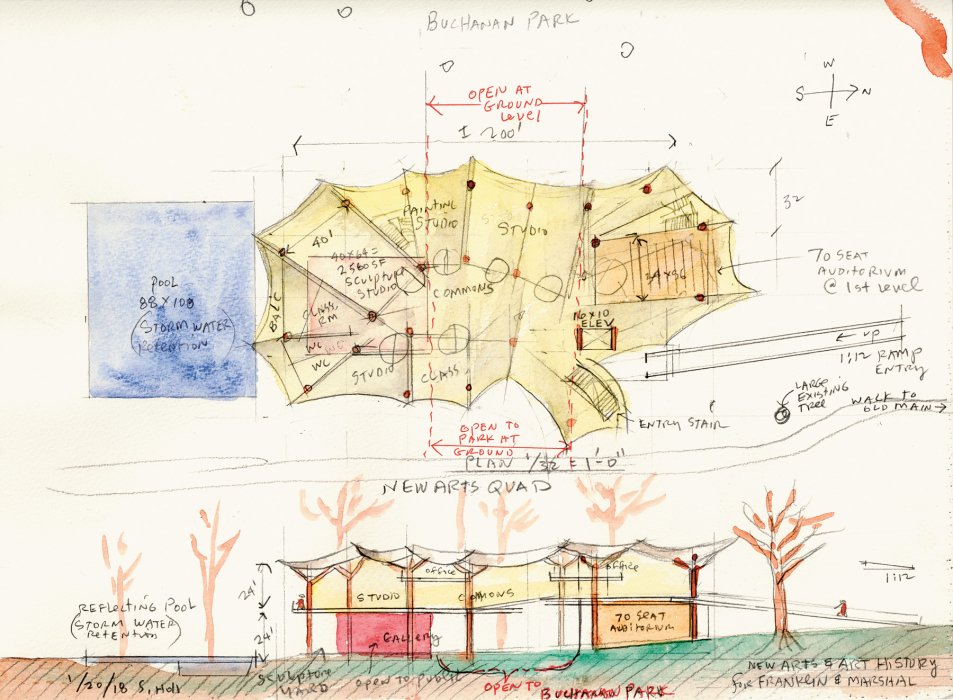 BUCHANAN PARK
W
S N
E
OPEN AT
GROUND
LEVEL
200'
32
PAINTING
STUDIO
STUDIO
40'
40x64=
2560 SF
SCULPTURE
STUDIO
COMMONS
24x36
70 SEAT
AUDITORIUM
@ 1st Level
POOL
88x108
(STORM WATER
RETENTION)
BALC
CLASS
RM
WC
WC
WC
STUDIO
CLASS
10x10
ELEV
← UP
1:12 RAMP
ENTRY
LARGE
EXISTING
TREE
WALK TO
OLD MAIN →
ENTRY STAIR
OPEN TO
PARK AT
GROUND
PLAN 1/32 = 1'-0"
NEW ARTS QUAD
OFFICE
OFFICE
1:12
24'
24'
STUDIO
COMMONS
REFLECTING POOL
(STORM WATER
RETENTION)
GALLERY
70 SEAT
AUDITORIUM
SCULPTURE
YARD
OPEN TO PUBLIC
OPEN TO
BUCHANAN PARK
NEW ARTS & ART HISTORY
for FRANKLIN & MARSHAL
1/20/18 S. Holl